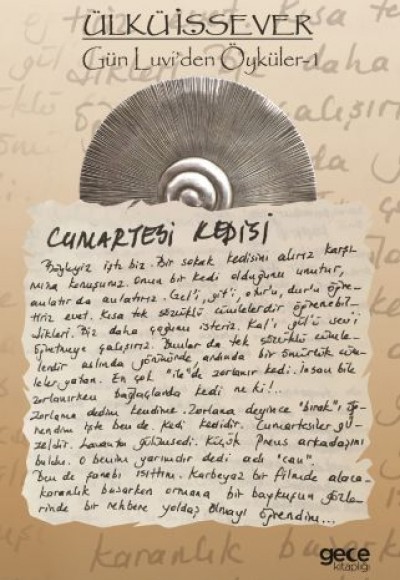 ÜLKÜİSSEVER
Gün Luvi'den Öyküler-1
CUMARTESİ KEDİSİ
Böyleyiz işte biz. Bir sokak kedisini alırız karşı
mıza konuşuruz. Onun bir kedi olduğunu unutur,
anlatır da anlatırız. Gel'i, git'i, otur'u, dur'u öğre-
tiriz evet. Kısa tek sözcüklü cümlelerdir öğrenebil-
dikleri. Biz daha çoğunu isteriz. Kal'ı gül'ü sev'i
öğretmeye çalışırız. Bunlar da tek sözcüklü cümle-
lerdir aslında ardında bir ömürlük cüm-
leler yatan. En çok "ile"de zorlanır kedi. İnsan bile
zorlanırken bağlaçlarda kedi ne ki!..
Zorlama dedim kendime. Zorlama deyince "bırak"ı öğ-
rendim işte ben de. Kedi kedidir. Cumartesiler gü-
zeldir. Lavanta gülümsedi. Küçük Prens arkadaşını
buldu. O benim yarımdır dedi adı "can".
Ben de isittim. Karbeyaz bir filmde alaca-
karanlık basarken ormana bir baykuşun gözle-
rinde bir rehbere yoldaş olmayı öğrendim...
gece
kitaplığı